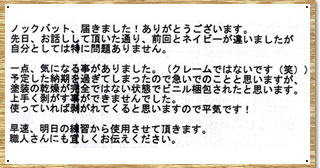 ノックバット、届きました！ありがとうございます。
先日、お話しして頂いた通り、前回とネイビーが違いましたが
自分としては特に問題ありません。
一点、気になる事がありました。（クレームではないです（笑））
予定した納期を過ぎてしまったので急いでのことと思いますが、
塗装の乾燥が完全ではない状態でビニル梱包されたと思います。
上手く剥がす事ができませんでした。
使っていれば剥がれてくると思いますので平気です！
早速、明日の練習から使用させて頂きます。
職人さんにも宜しくお伝えください。